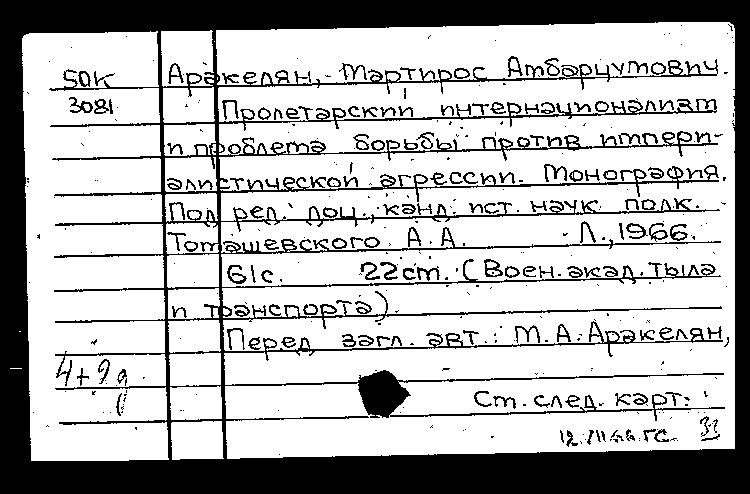 50К Аракелян, Мартирос Амбарцумович.
3081 Пролетарский интернационализм
и проблема борьбы против импери-
алистической агрессии. Монография.
Под ред. доц., канд. ист. наук полк.
Томашевского А.А. Л., 1966.
61с. 22см. (Воен. акад. тыла
и транспорта).
Перед загл. авт.: М.А. Аракелян,
4+9д
См. след. карт.